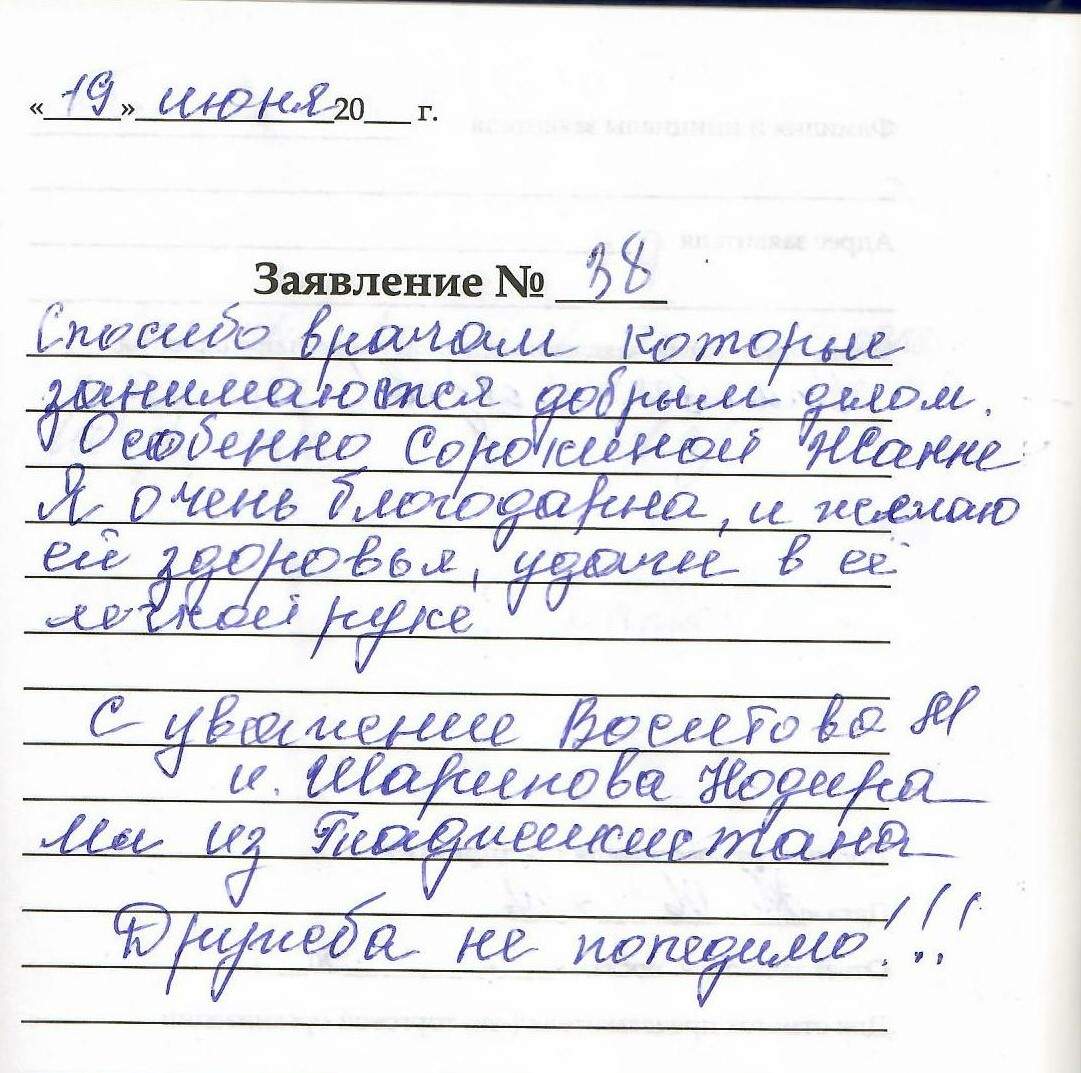 «19» июня 20___ г.
Заявление № 38
Спосибо врачам которые
занимаются добрым делом.
Особенно Сорокиной Жанне
Я очень благодарна, и желаю
ей здоровья, удачи в её
легкой руке
С уважение Воситова М
и. Шарипова Нодира
Ми из Таджикистана
Дружба не попедимо!!!